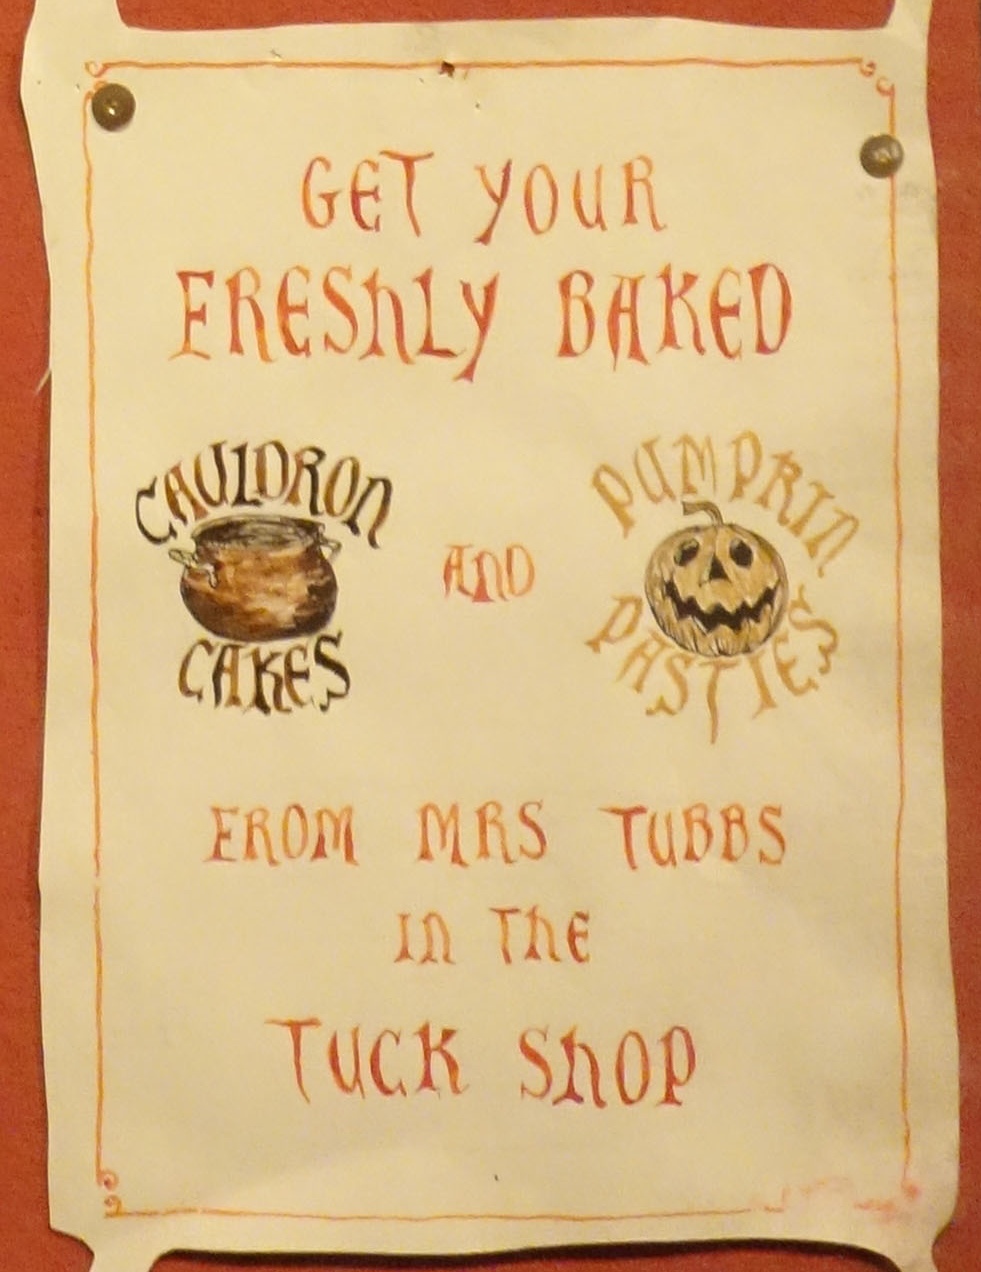 GET YOUR
FRESHLY BAKED
CAULDRON
CAKES
AND
PUMPKIN
PASTIES
FROM MRS TUBBS
IN THE
TUCK SHOP